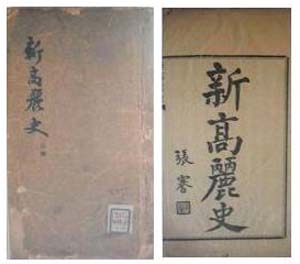 新高麗史
新高麗史
張謇